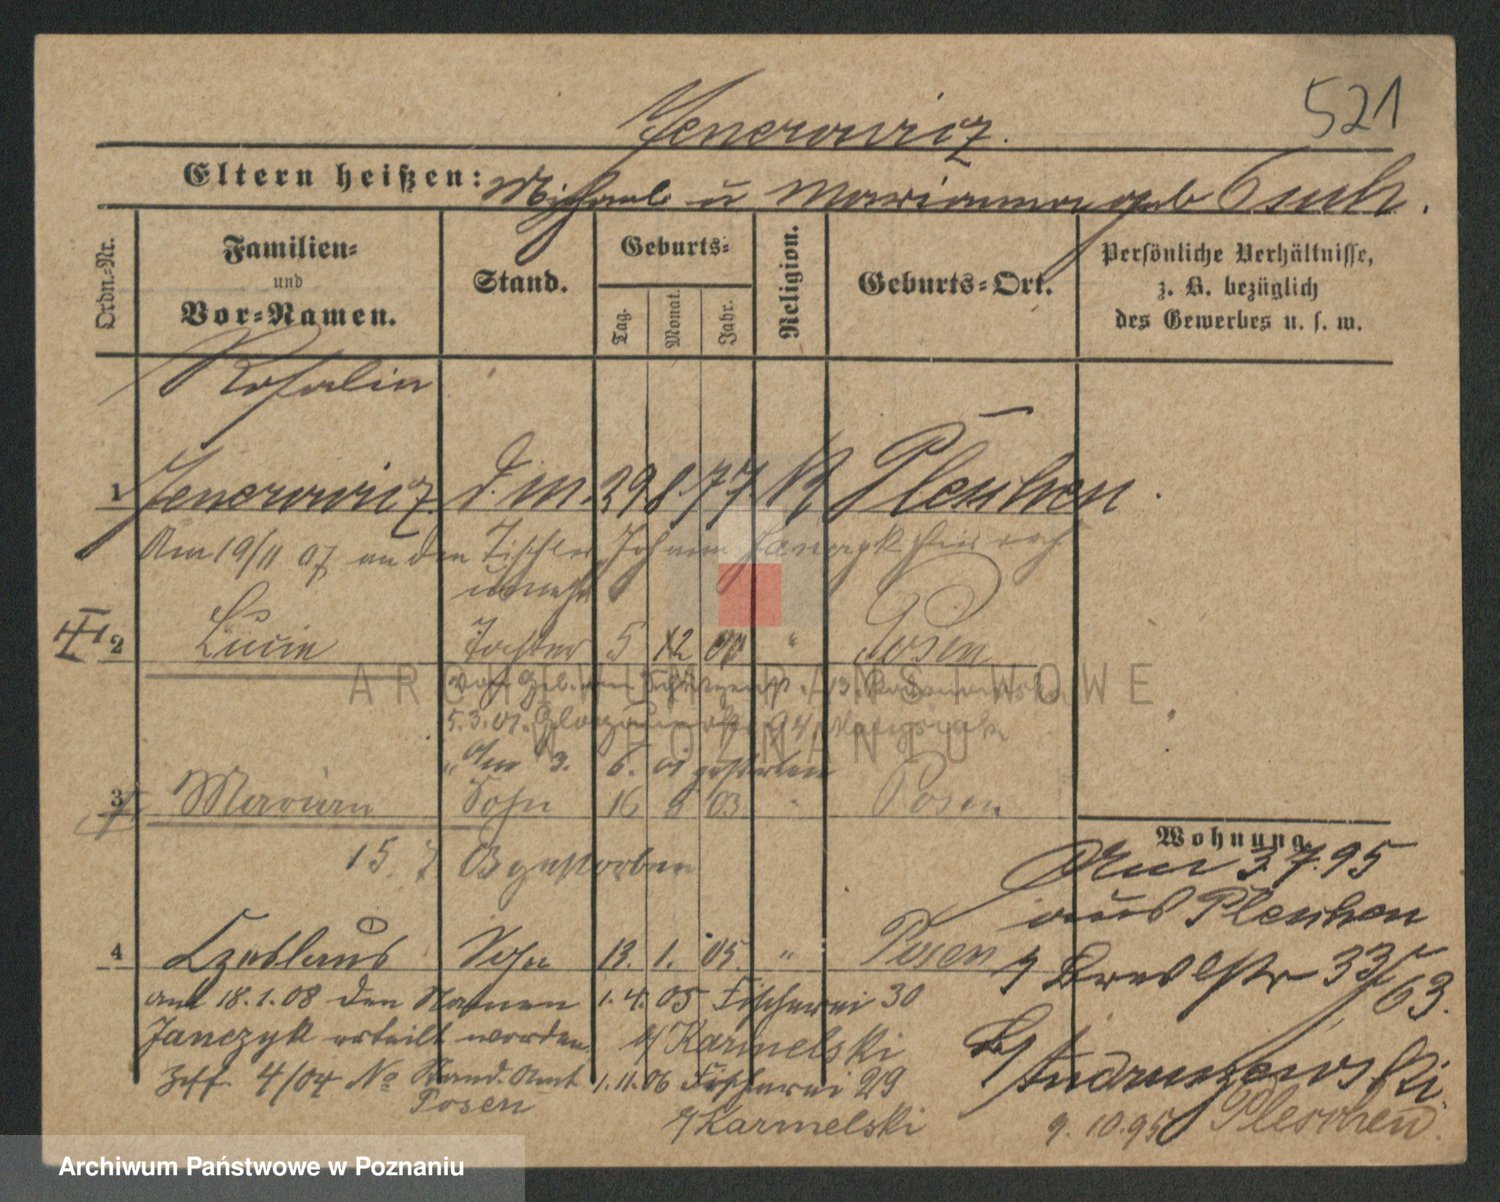 521
Jenerowicz.
Eltern heißen: Michael u Marianna geb
Ordn.-Nr.
Familien-
und
Vor-Namen.
Stand.
Geburts-
Tag.
Monat.
Jahr.
Religion.
Geburts-Ort.
Persönliche Verhältnisse,
z. B. bezüglich
des Gewerbes u. s. w.
Rosalin
1 Jenerowicz d. m. 29 8. 77. K Pleschen.
Am 19/11 07 an den Tischler Johann Janczyk
2 Lucie Tochter 5 12 00 " Posen
5.3.01.
" Am 3. 6. 01 gestorben
3 Marian Sohn 16 03 " Posen
15. 7 03 gestorben
Wohnung.
Am 3.7.95
aus Pleschen
Breslstr 33/63.
b/ Andruszewski
9.10.95 Pleschen.
4 Czeslaus Sohn 13. 1. 05. " Posen
am 18.1.08 den Namen
Janczyk erteilt worden.
4/04 No Stand. Amt
Posen
1.4.05 Fischerei 30
b/ Karmelski
1.11.06 Fischerei 29
b/ Karmelski
ARCHIWUM PAŃSTWOWE
W POZNANIU
Archiwum Państwowe w Poznaniu